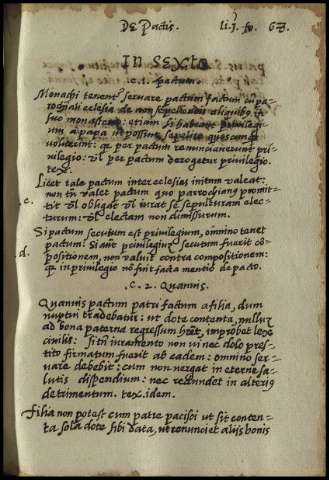 DE Pactis. li. j. fo. 63.
IN SEXTO
.c. 1. pactum
Monachi tenent servare pactum factum cu pa-
rochiali eclesia de non sepeliendis aliquibus in
suo monasterio: etiam si habeant privilegi-
um a papa ut possint sepelire quoscumque
voluerint: qr per pactum renunciaverunt pri-
vilegio: vel per pactum derogetur privilegio.
tex.
Licet tale pactum inter eclesias initum valeat:
.c. non tn valet pactum quo parrochianus promit-
tit vl obligat vl iurat se sepulturam elec-
turum: vl electam non dimissurum.
Si pactum secutum est privilegium, omnino tenet
pactum: Si aut privilegiu secutum fuerit co-
.d. positionem, non valuit contra compositionem:
qr in privilegio no fuit facta mentio de pacto.
.c. 2. Quamvis.
Quamvis pactum patri factum a filia, dum
nuptui tradebatur: ut dote contenta, nullum
ad bona paterna regressum hret, improbet lex
civilis: Si tn iuramento non vi nec dolo pres-
tito firmatum fuerit ab eadem: omnino ser-
vare debebit: cum non vergat in eterne sa-
lutis dispendium: nec redundet in alterius
detrimentum. tex. idem.
Filia non potest cum patre pacisci ut sit conten-
ta sola dote sibi data, ut renunciet aliis bonis